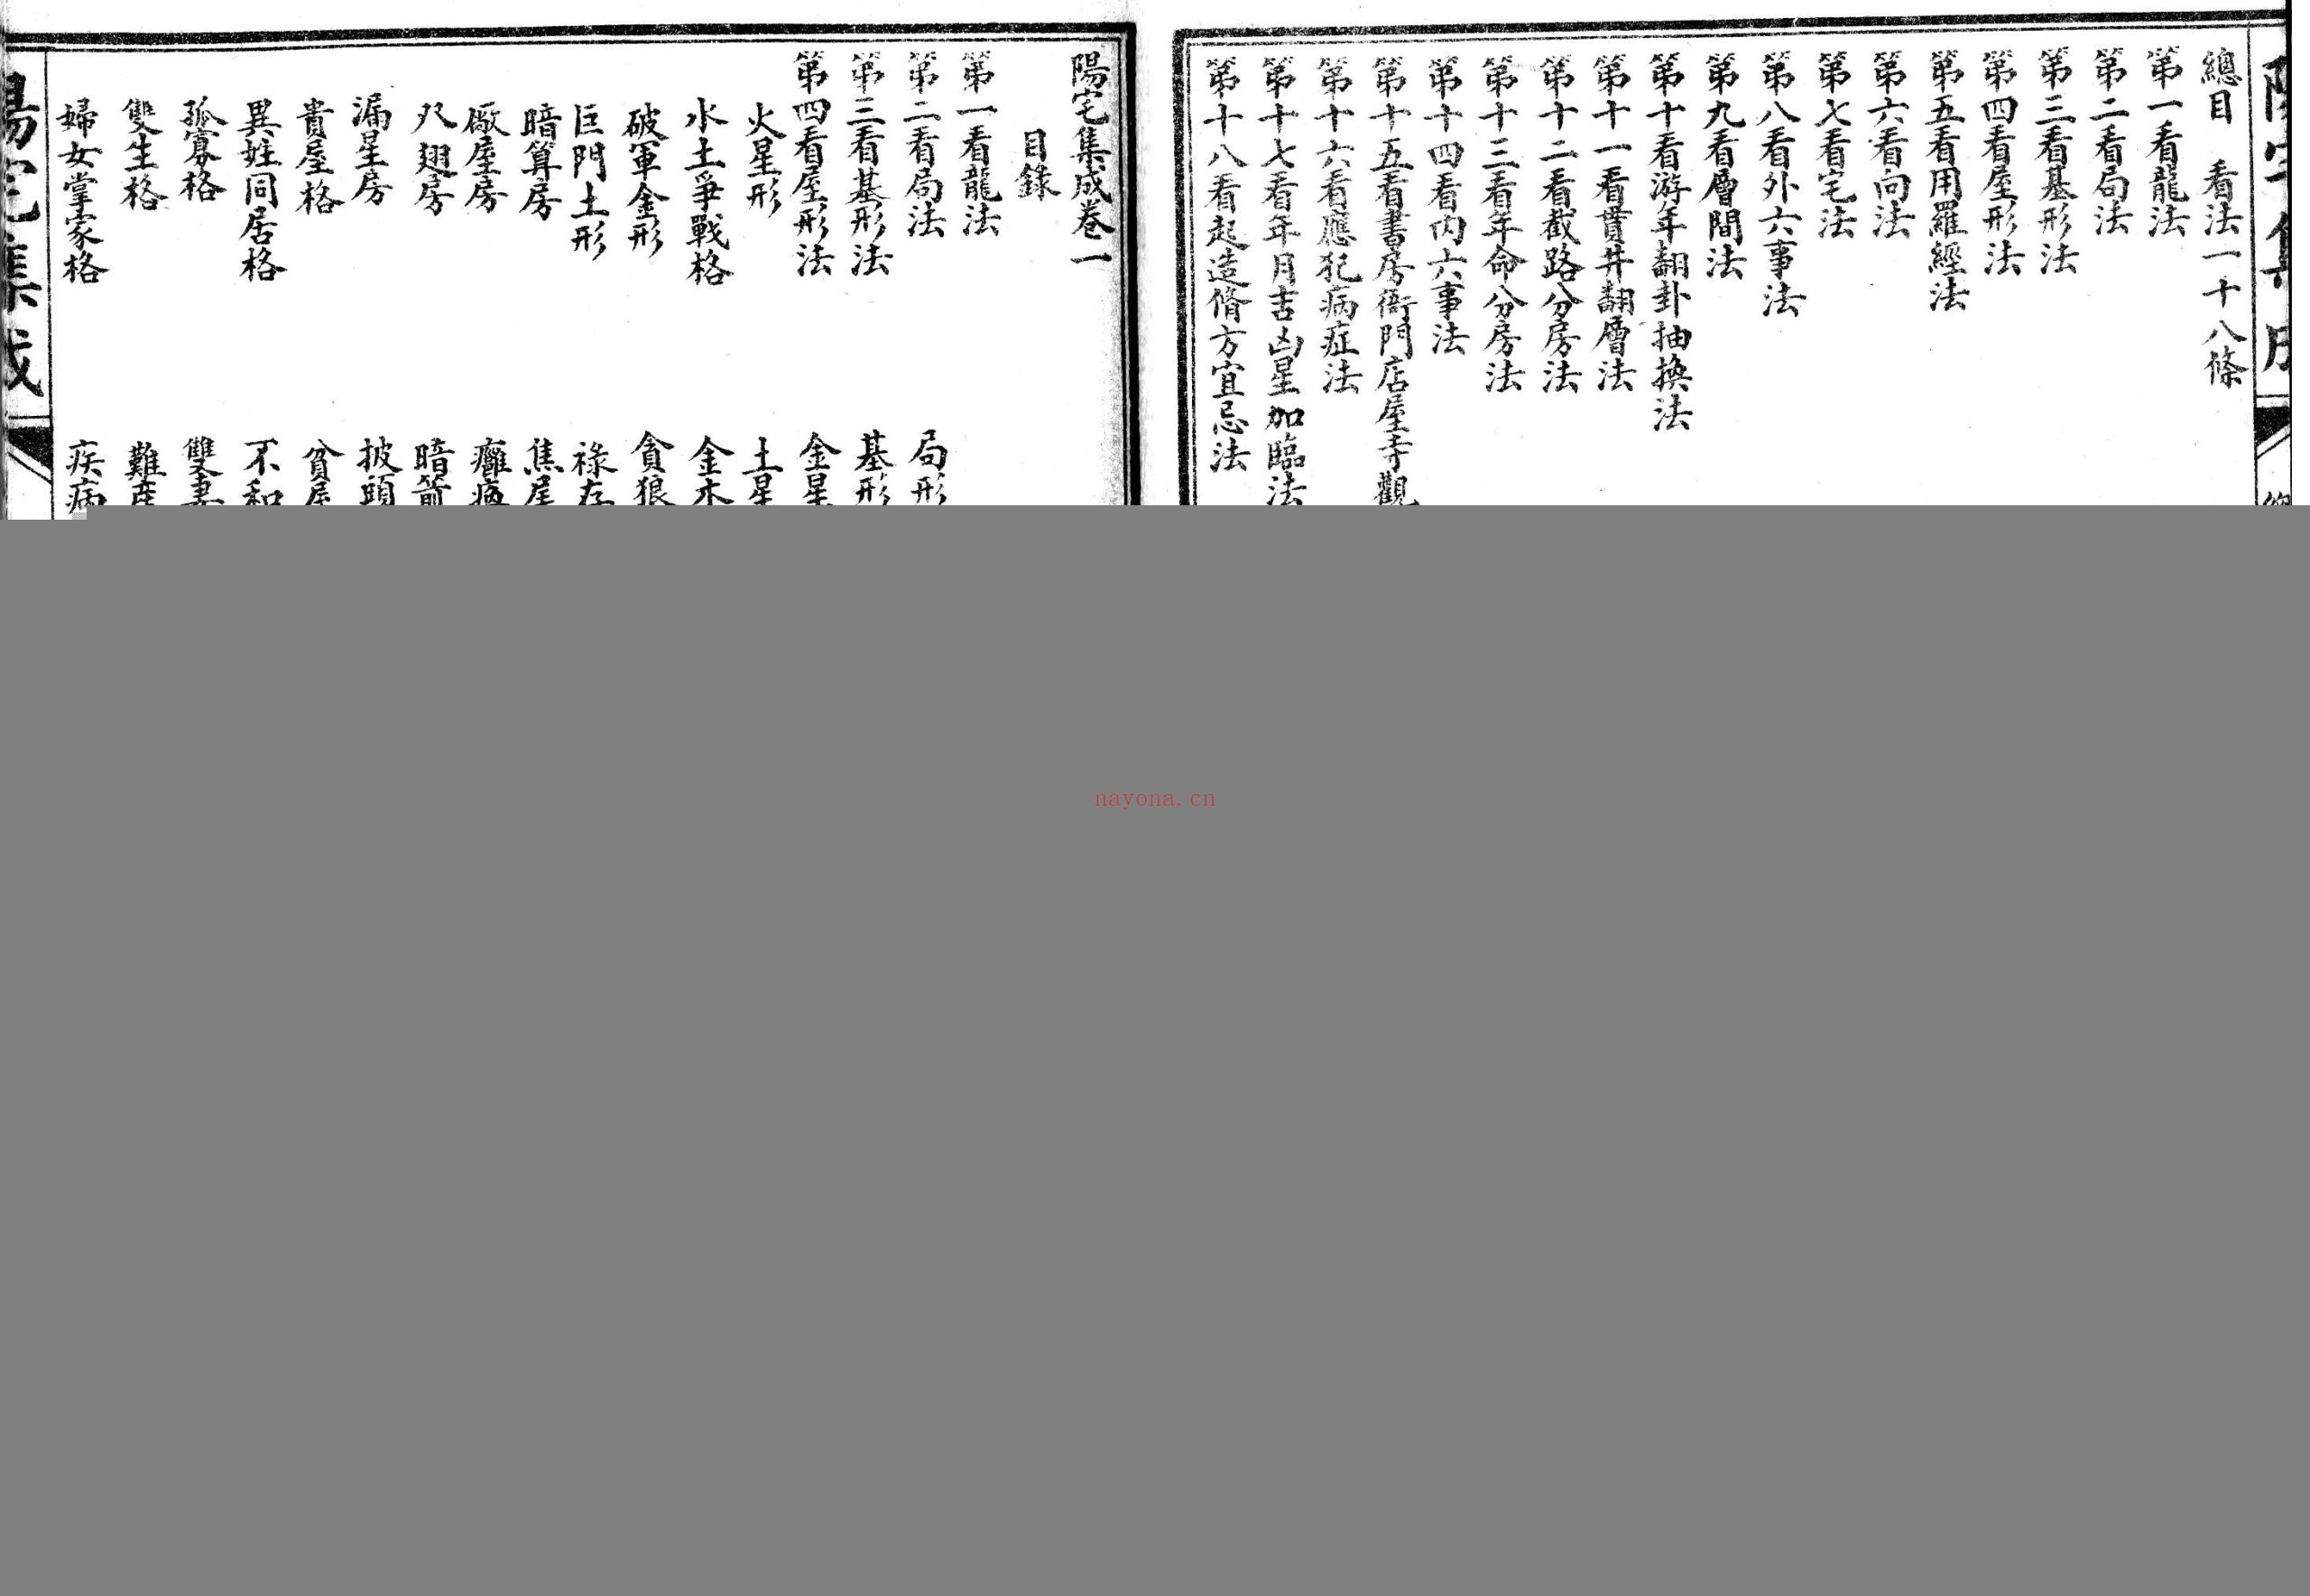 總目　看法一十八條
第一看龍法
第二看局法
第三看基形法
第四看屋形法
第五看用羅經法
第六看向法
第七看宅法
第八看外六事法
第九看層間法
第十看游年翻卦抽換法
第十一看貫井翻層法
第十二看截路分房法
第十三看年命分房法
第十四看內六事法
第十五看書房衙門店屋寺觀
第十六看應犯病症法
第十七看年月吉凶星加臨法
第十八看起造脩方宜忌法
陽宅集成卷一
目錄
第一看龍法
第二看局法　局形
第三看基形法　基形
第四看屋形法　金星
火星形　土星
水土爭戰格　金木
破軍金形　貪狼
巨門土形　祿存
暗算房　焦尾
廠屋房
尺翅房　暗箭
漏星房　披頭
貴屋格　貧屋
異姓同居格　不和
孤寡格　雙妻
雙生格　難產
婦女掌家格　疾病
陽宅集成
nayona.cn